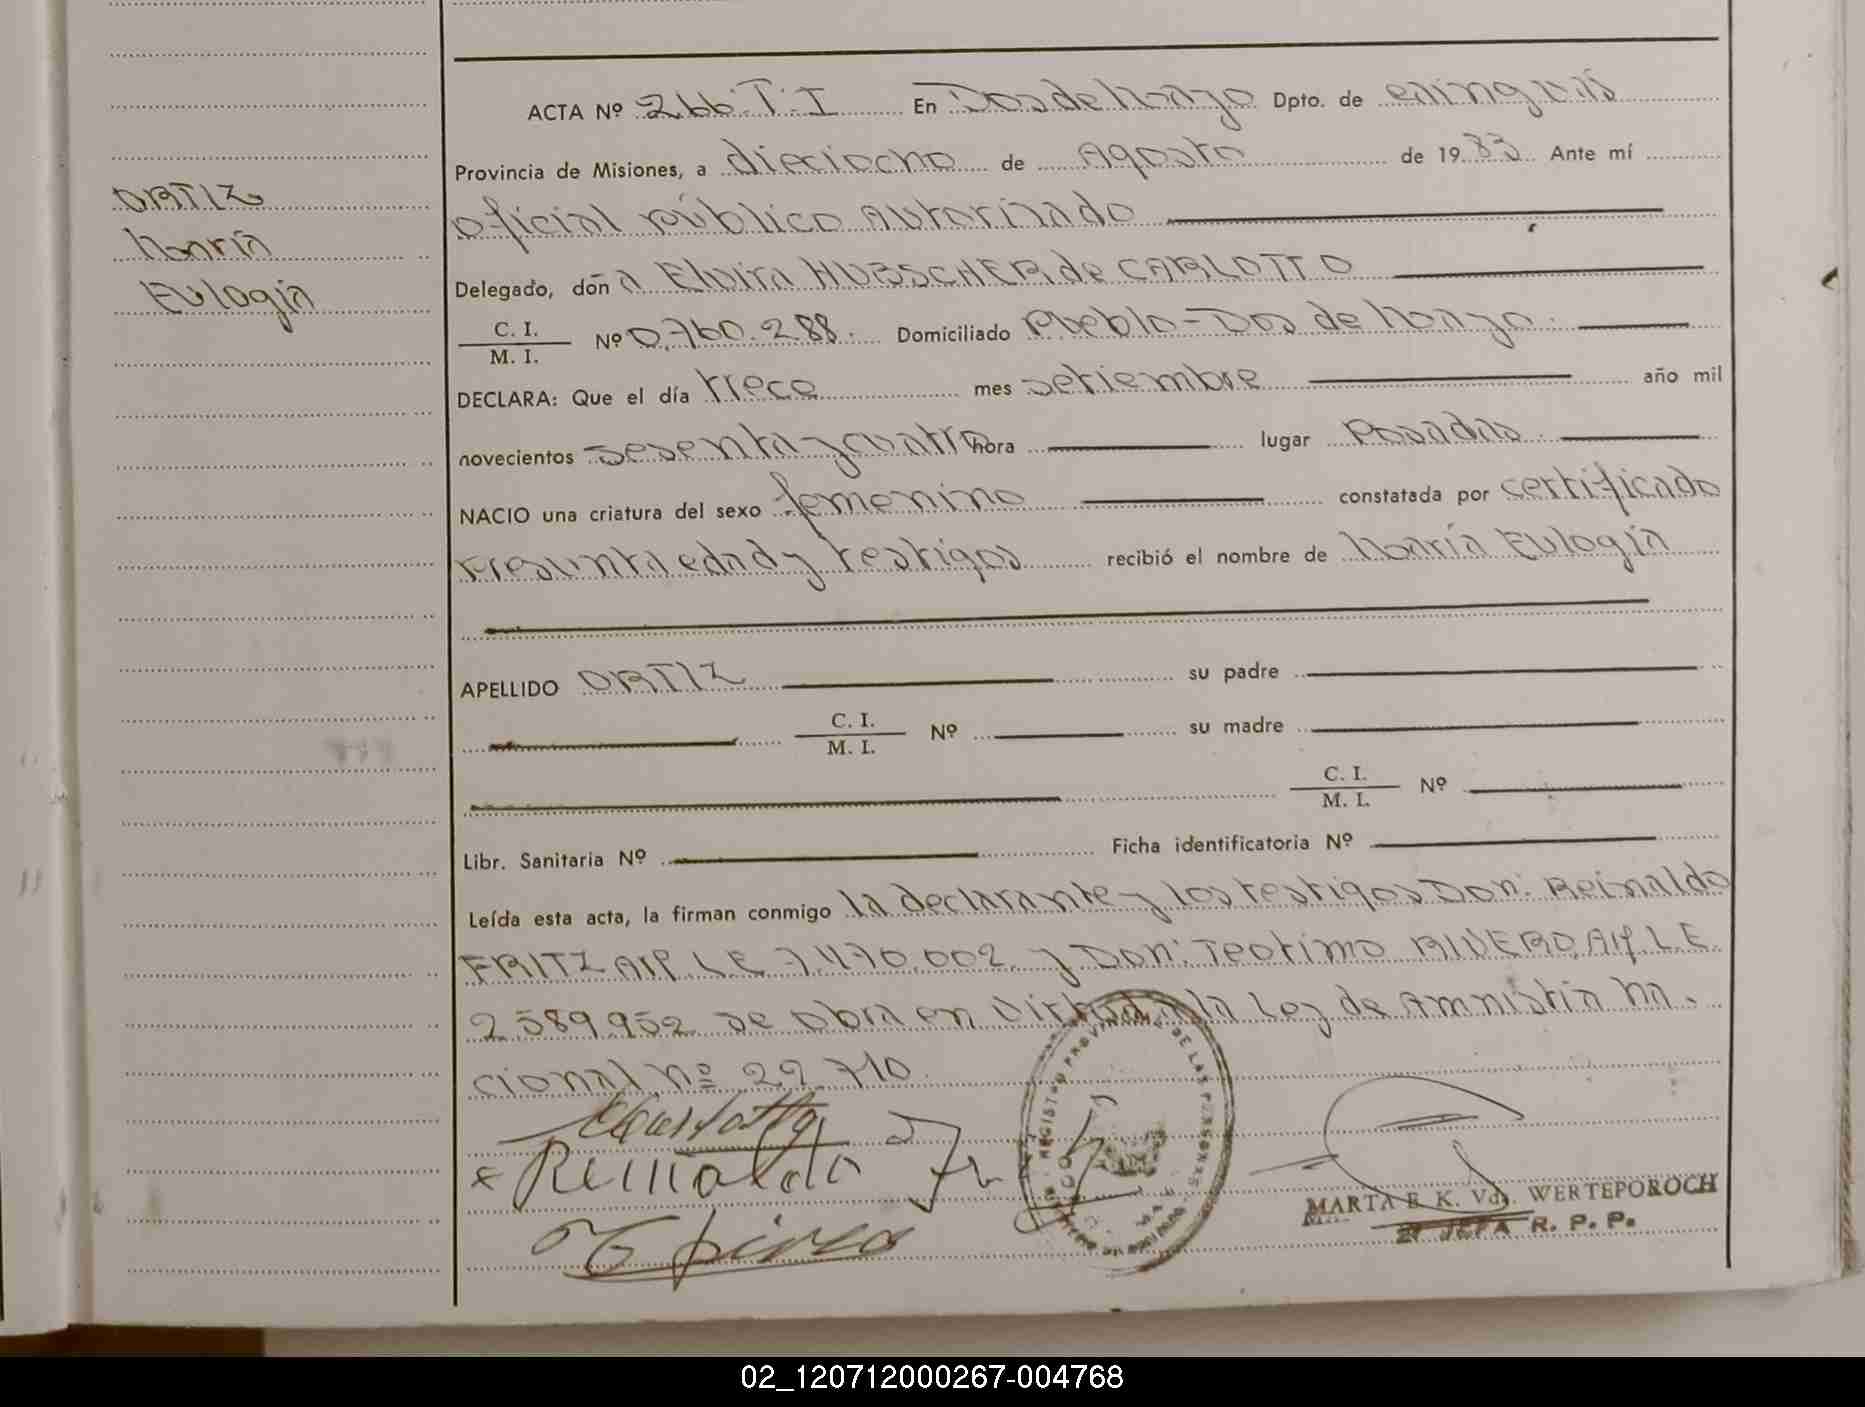 ORTIZ
María
Eulogia
ACTA Nº 266. T. I En Dos de Mayo Dpto. de Cainguás
Provincia de Misiones, a dieciocho de Agosto de 1983 Ante mí
Oficial público Autorizado
Delegado, doña Elvira HUBSCHER de CARLOTTO
C. I.
M. I. Nº 0.760.288. Domiciliado Pueblo-Dos de Mayo.
DECLARA: Que el día trece mes setiembre año mil
novecientos sesenta y cuatro hora lugar Posadas.
NACIO una criatura del sexo femenino constatada por certificado
Presunta edad y testigos recibió el nombre de María Eulogia
APELLIDO ORTIZ su padre
C. I.
M. I. Nº su madre
C. I.
M. I. Nº
Libr. Sanitaria Nº Ficha identificatoria Nº
Leída esta acta, la firman conmigo la declarante y los testigos Don: Reinaldo
FRITZ L.E 7.470.002. y Don: Teotimo RIVERO, L.E.
2.589.952 se obra en virtud a la Ley de Amnistía Na.
cional nº 22.710.
Reinaldo
REGISTRO PROVINCIAL DE LAS PERSONAS
MARTA E. K. Vda. WERTEPOROCH
JEFA R. P. P.
02_120712000267-004768